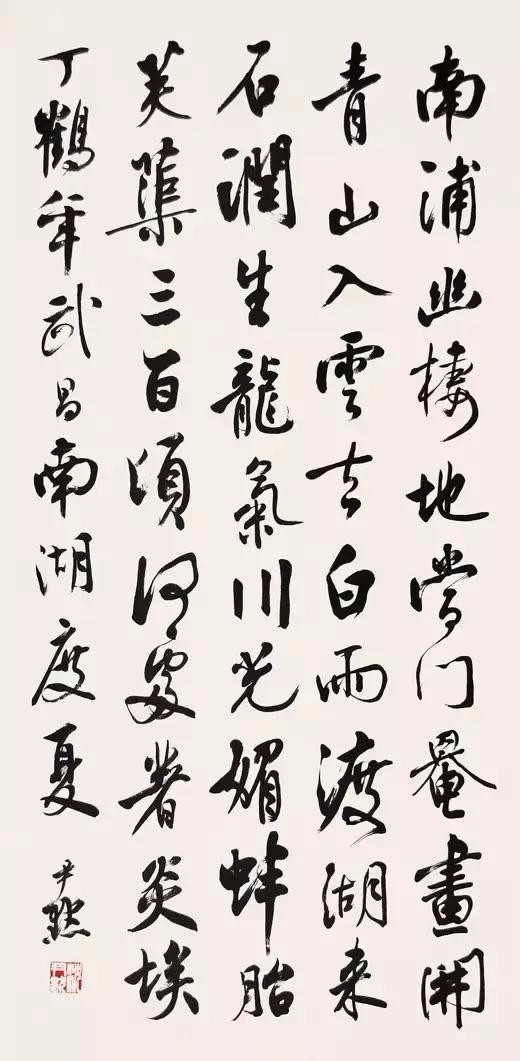 南浦幽棲地當門罨畫開
青山入雲去白雨渡湖来
石潤生龍氣川光媚蚌胎
芙蕖三百頃何處著炎埃
丁鶴年武昌南湖度夏 尹默